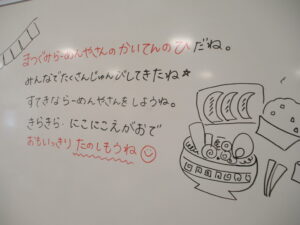 まつぐみらーめんやさんのかいてんのひだね。
みんなでたくさんじゅんびしてきたね★
すてきならーめんやさんをしようね。
きらきら・にこにこえがおで
おもいっきりたのしもうね